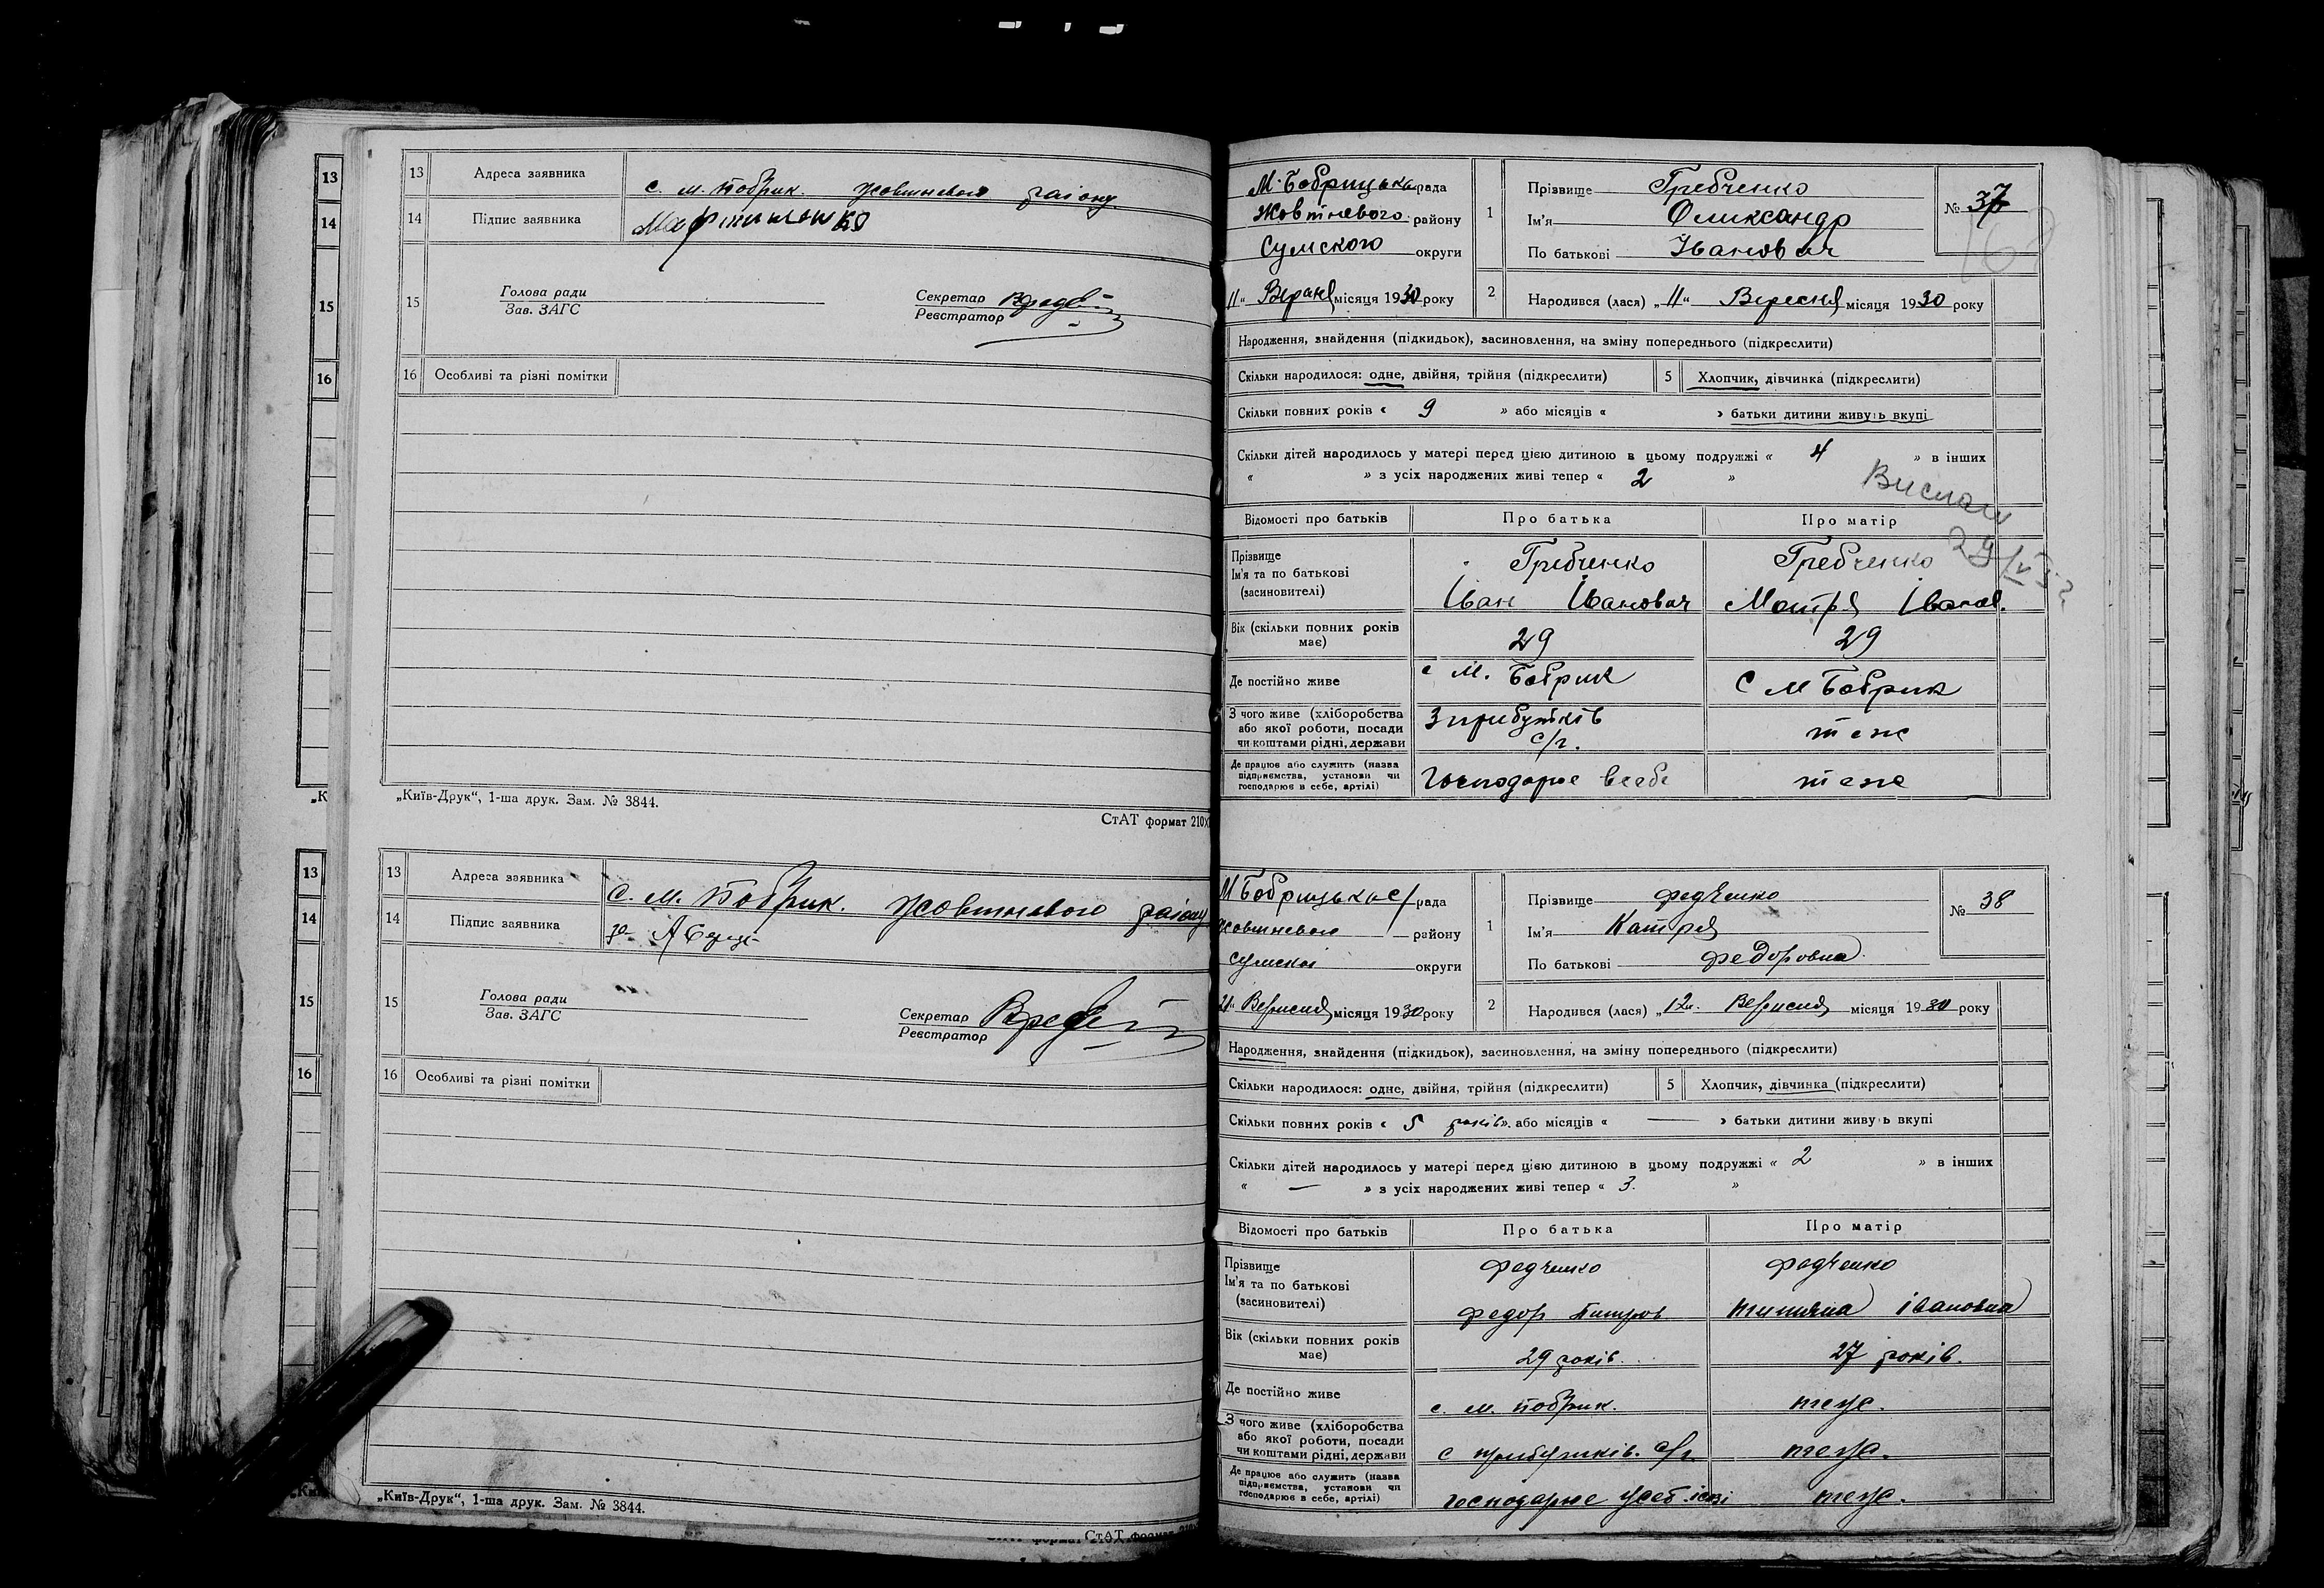 13
14
15
16
13 Адреса заявника с. м. Бобрик. Жовтневого району
14 Підпис заявника Мартиненко
15 Голова ради
Зав. ЗАГС
Секретар
Реєстратор
16 Особливі та різні помітки
„Київ-Друк“, 1-ша друк. Зам. № 3844.
СтАТ формат 210X
13
14
15
16
13 Адреса заявника с. м. Бобрик. Жовтневого району
14 Підпис заявника
15 Голова ради
Зав. ЗАГС
Секретар
Реєстратор
16 Особливі та різні помітки
„Київ-Друк“, 1-ша друк. Зам. № 3844.
СтАТ формат
М. Бобрицька рада
Жовтневого району
Сумского округи
11 " місяця 1930 року
1 Прізвище Гребченко
Ім'я Олександр
По батькові Іванович
№ 37
2 Народився (лася) „11" Вересня місяця 1930 року
Народження, знайдення (підкидьок), засиновлення, на зміну попереднього (підкреслити)
Скільки народилося: одне, двійня, трійня (підкреслити) 5 Хлопчик, дівчинка (підкреслити)
Скільки повних років « 9 » або місяців « » батьки дитини живуть вкупі
Скільки дітей народилось у матері перед цією дитиною в цьому подружжі « 4 » в інших
« » з усіх народжених живі тепер « 2 »
Відомості про батьків Про батька Про матір
Прізвище Гребченко Гребченко
Ім'я та по батькові
(засиновителі) Іван Іванович Мотря Іванов.
Вік (скільки повних років має) 29 29
Де постійно живе с М. Бобрик С М Бобрик
З чого живе (хліборобства
або якої роботи, посади
чи коштами рідні, держави З прибутків с/г. теже
Де працює або служить (назва
підприємства, установи чи
господарює в себе, артілі) Господарює в себе теже
М Бобрицька с/рада
Жовтневого району
Сумскої округи
21" Вересня місяця 1930 року
1 Прізвище Федченко
Ім'я Катря
По батькові Федоровна
№ 38
2 Народився (лася) „12". Вересня місяця 1930 року
Народження, знайдення (підкидьок), засиновлення, на зміну попереднього (підкреслити)
Скільки народилося: одне, двійня, трійня (підкреслити) 5 Хлопчик, дівчинка (підкреслити)
Скільки повних років « 5 років». або місяців « — » батьки дитини живуть вкупі
Скільки дітей народилось у матері перед цією дитиною в цьому подружжі « 2 » в інших
« — » з усіх народжених живі тепер « 3. »
Відомості про батьків Про батька Про матір
Прізвище Федченко Федченко
Ім'я та по батькові
(засиновителі) Федор Питров Титяна Івановна
Вік (скільки повних років має) 29 років. 27 років.
Де постійно живе с. м. Бобрик. теже.
З чого живе (хліборобства
або якої роботи, посади
чи коштами рідні, держави с прибутків. с/г. теже.
Де працює або служить (назва
підприємства, установи чи
господарює в себе, артілі) господарює теже.